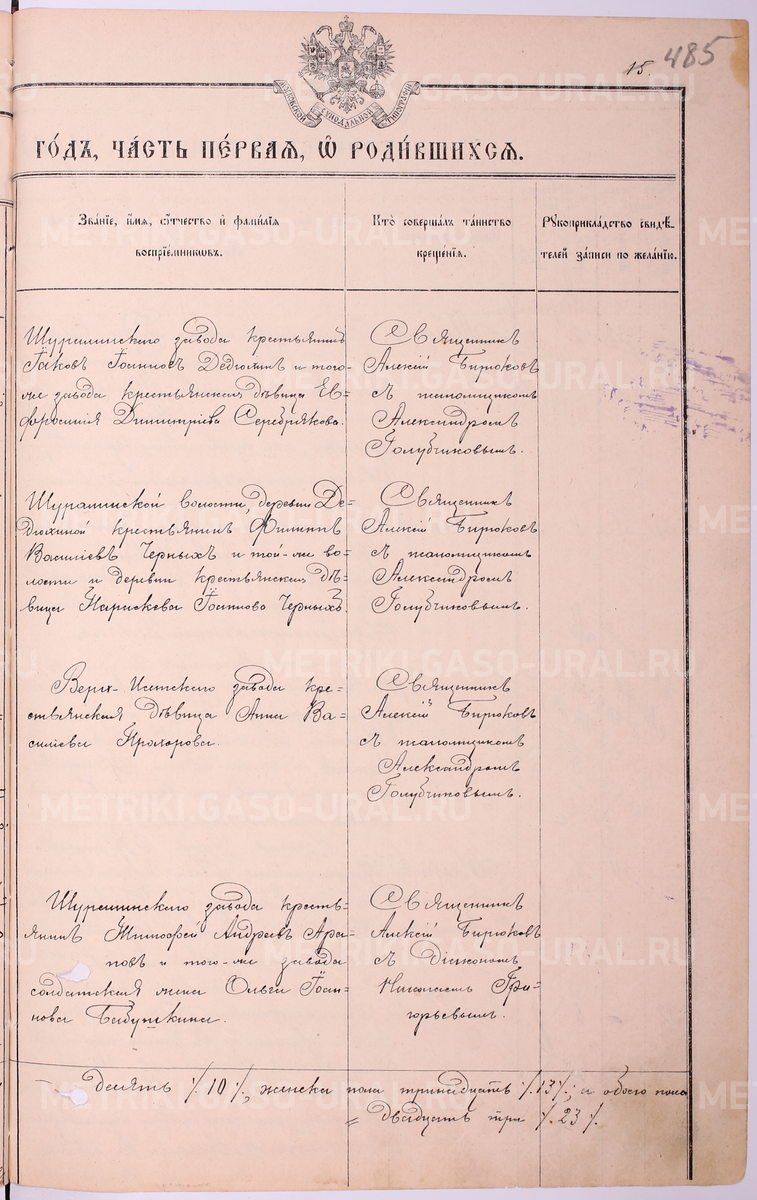 15.
485
МОСКОВСКОЙ СѴНОДАЛЬНОЙ ТИПОГРАФІИ
ГО́ДЪ, ЧА́СТЬ ПЕ́РВАѦ, Ѡ҆ РОДИ́ВШИХСѦ.
Зва́нїе, и҆́мѧ, ѻ҆́тчество и҆ фами́лїѧ
воспрїе́мникѡвъ.
Кто̀ соверша́лъ та́инство
креще́нїѧ.
Рꙋкоприкла́дство свидѣ́-
телей за́писи по жела́нїю.
Шуралинскаго завода крестьянинъ
Іаковъ Іоанновъ Дедюхинъ и того-
же завода крестьянская дѣвица Ев-
фросинія Димитріева Серебрякова.
Священникъ
Алексій Бирюковъ
съ псаломщикомъ
Александромъ
Голубчиковымъ.
Шуралинской волости, деревни Де-
дюхиной крестьянинъ Филиппъ
Василіевъ Черныхъ и той-же во-
лости и деревни крестьянская дѣ-
вица Параскева Іоаннова Черныхъ
Священникъ
Алексій Бирюковъ
съ псаломщикомъ
Александромъ
Голубчиковымъ.
Верх-Исетскаго завода кре-
стьянская дѣвица Анна Ва-
силіева Прохорова.
Священникъ
Алексій Бирюковъ
съ псаломщикомъ
Александромъ
Голубчиковымъ.
Шуралинскаго завода кресть-
янинъ Тимофей Андреевъ Ара-
повъ и того-же завода
солдатская жена Ольга Іоан-
нова Бабушкина.
Священникъ
Алексій Бирюковъ
съ Діакономъ
Николаемъ Гри-
горьевымъ.
десять /10/, женска пола тринадцать /13/, а обоего пола
= двадцать три /23/.
METRIKI.GASO-URAL.RU